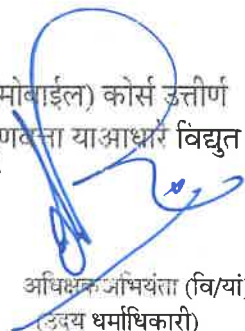 मोबाईल) कोर्स उत्तीर्ण
याआधारे विद्युत
अधिक्षक अभियंता (वि/यां)
(उदय धर्माधिकारी)